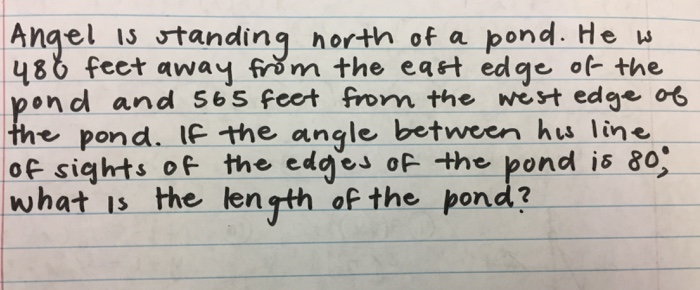 Angel is standing north of a pond. He is
feet away from the east edge of the
pond and 565 feet from the west edge of
the pond. If the angle between his line
of sights of the edges of the pond is 80°,
what is the length of the pond?